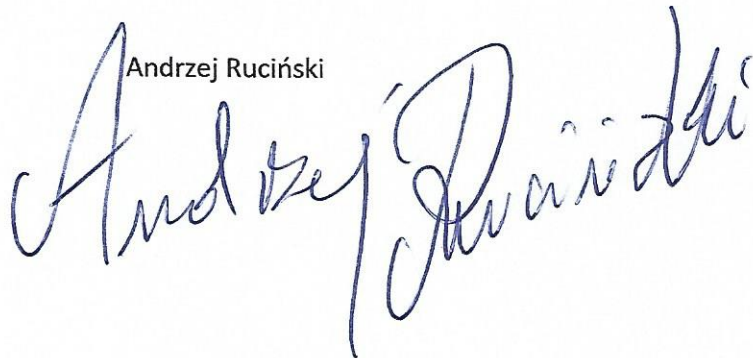 Andrzej Ruciński
Andrzej Ruciński